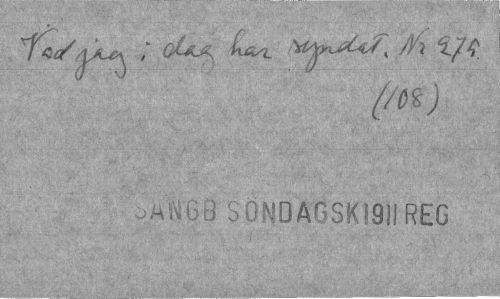 Vad jag i dag har syndat. Nr 275.
(108)
SÅNGB SÖNDAGSK 1911 REG